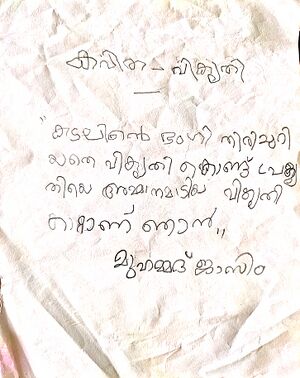 കവിത – വികൃതി
"കടലിൻെ ഭംഗി തിരിമുറി
യതെ വികൃതി കൊണ്ട് പ്രകൃ
തിയെ അമ്മാനമാടിയ വികൃതി
യാണ് ഞാൻ,,
മുഹമ്മദ് ജാസിം